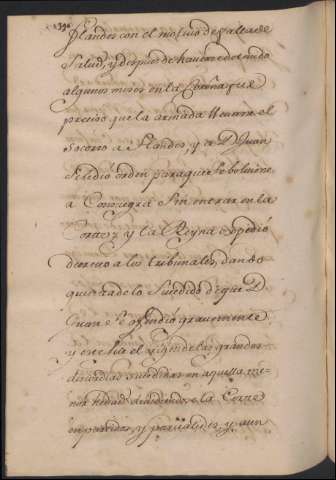 139v
Flandes con el motivo de falta de
Salud, y despues de haverse detenido
algunos meses en la Coruña fue
preciso que la armada llevarse el
Socorro a Flandes, y a D. Juan
Se le dió orden para que se bolviese
a Consuegra sin entrar en la
Corte, y la Reyna expidió
decreto a los tribunales, dando
quenta de lo Sucedido de que D.
Juan se ofendió gravemente
y este fue el origen de las grandes
discordias sucedidas en aquella me-
nor hedad, dividiendose la Corte
en partidos, y parcialides, y aun